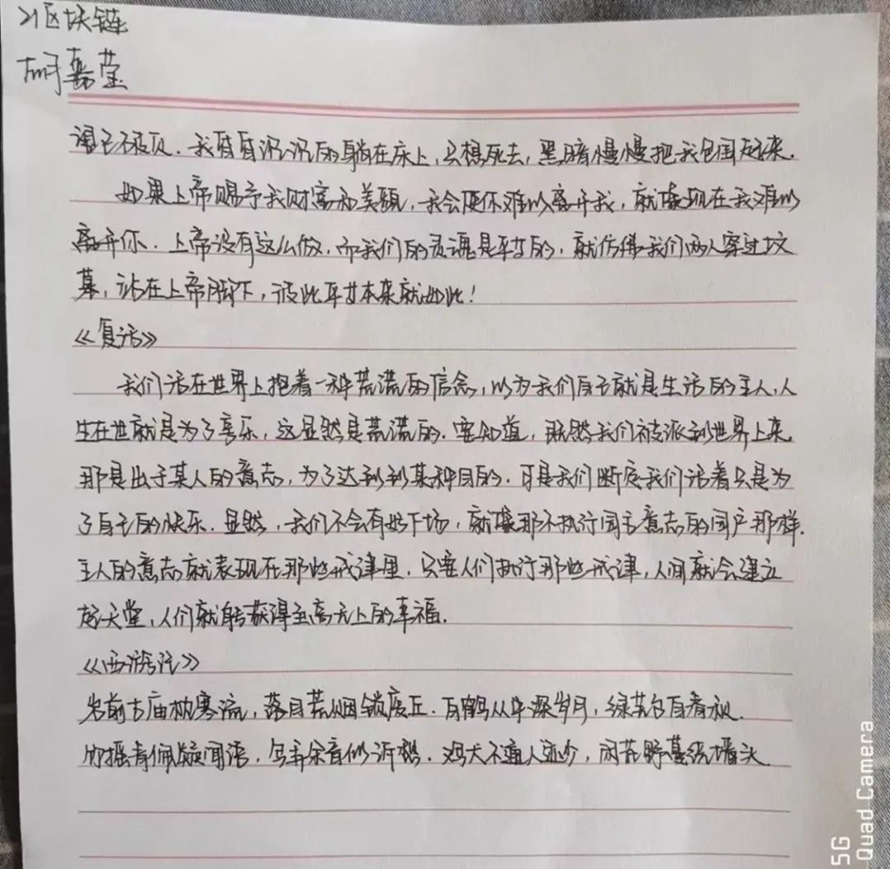 21区块链
胡嘉莹
谓已不及贝.我昏昏沉沉的躺在床上,只想死去,黑暗慢慢把我包围起来.
如果上帝赐予我财富和美貌,我会使你难以离开我,就像现在我难以
离开你.上帝没有这么做,而我们的灵魂是平等的,就仿佛我们两人穿过坟
墓,站在上帝脚下,彼此平等本来就如此!
《复活》
我们活在世界上抱着一种荒谎的信念,以为我们自己就是生活的主人,人
生在世就是为了享乐,这显然是荒谎的.要知道,既然我们被派到世界上来,
那是出于某人的意志,为了达到到某种目的.可是我们断定我们活着只是为
了自己的快乐.显然,我们不会有好下场,就像那不执行园主意志的园户那样.
主人的意志就表现在那些戒律里.只要人们执行那些戒律,人间就会建立
起天堂,人们就能获得至高无上的幸福.
《西游记》
岩前古庙枕寒流,落目荒烟锁废丘.百鹤丛中深岁月,绿芜台百春秋.
竹摇青佩疑闻语,鸟弄余音似诉愁.鸡犬不通人迹少,闲花野蔓绕墙头.
5G
Quad Camera